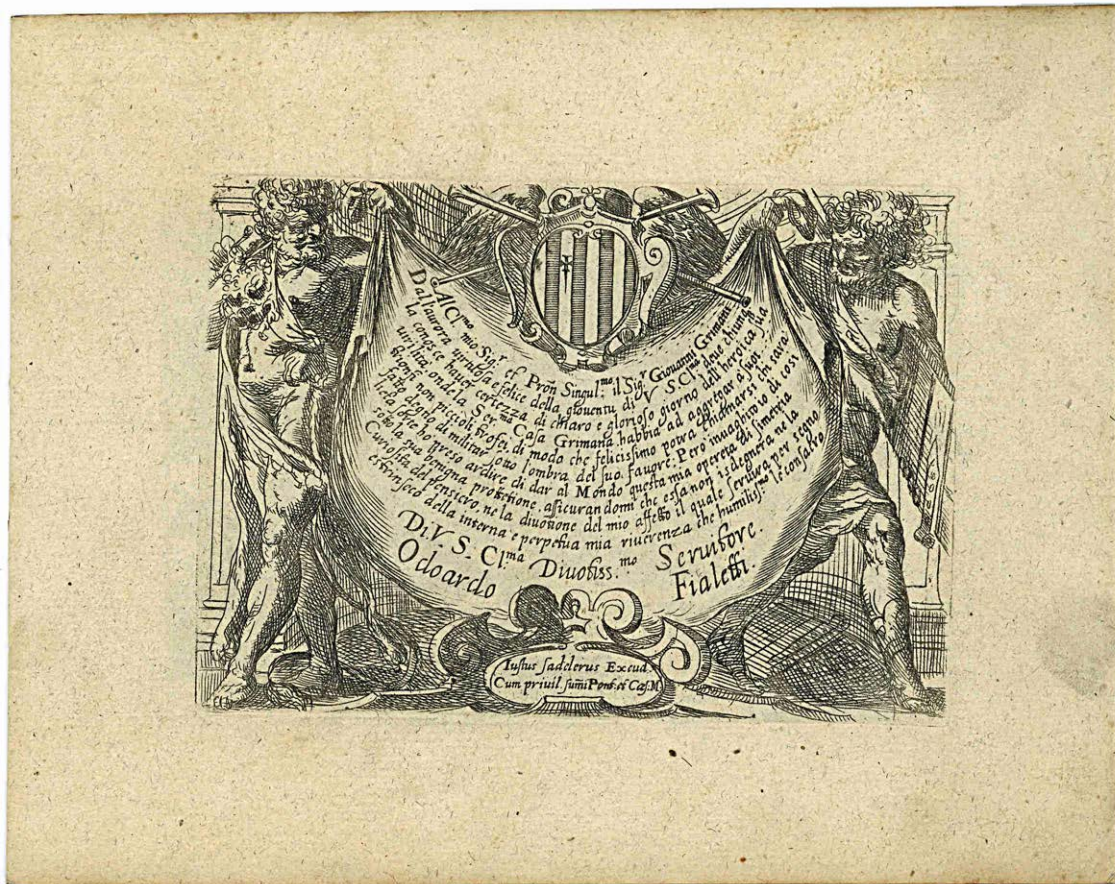 Al Cl.mo Sig.r et Pron̄ Singul.mo il Sig.r Giouanni Grimani
Dal'aurora uirtuosa e felice della giouentu di V S. Cl.ma deue chiunq
la conosce hauer certezza di chiaro e glorioso giorno dell' heroica sua
uirilita, onde la Ser.ma Casa Grimana habbia ad aggregar a suoi
non piccioli trofei, di modo che felicissimo potra chiamarsi chi sara
fatto degno di militar sotto l'ombra del suo fauore. Pero inuaghito io di cosi
lieta sorte ho preso ardire di dar al Mondo questa mia opereta di simetria
sotto la sua benigna protetione, asicurandomi che essa non isdegnera ne la
Curiosita del pensiero, ne la diuotione del mio affetto il quale seruira per segno
estrinseco della interna e perpetua mia riuerenza che humiliss.mo le consacro.
Di V S. Cl.ma Diuotiss.mo Seruitore.
Odoardo Fialetti.
Iustus sadelerus Excud
Cum privil. sum̄i Pont. et Cas. M